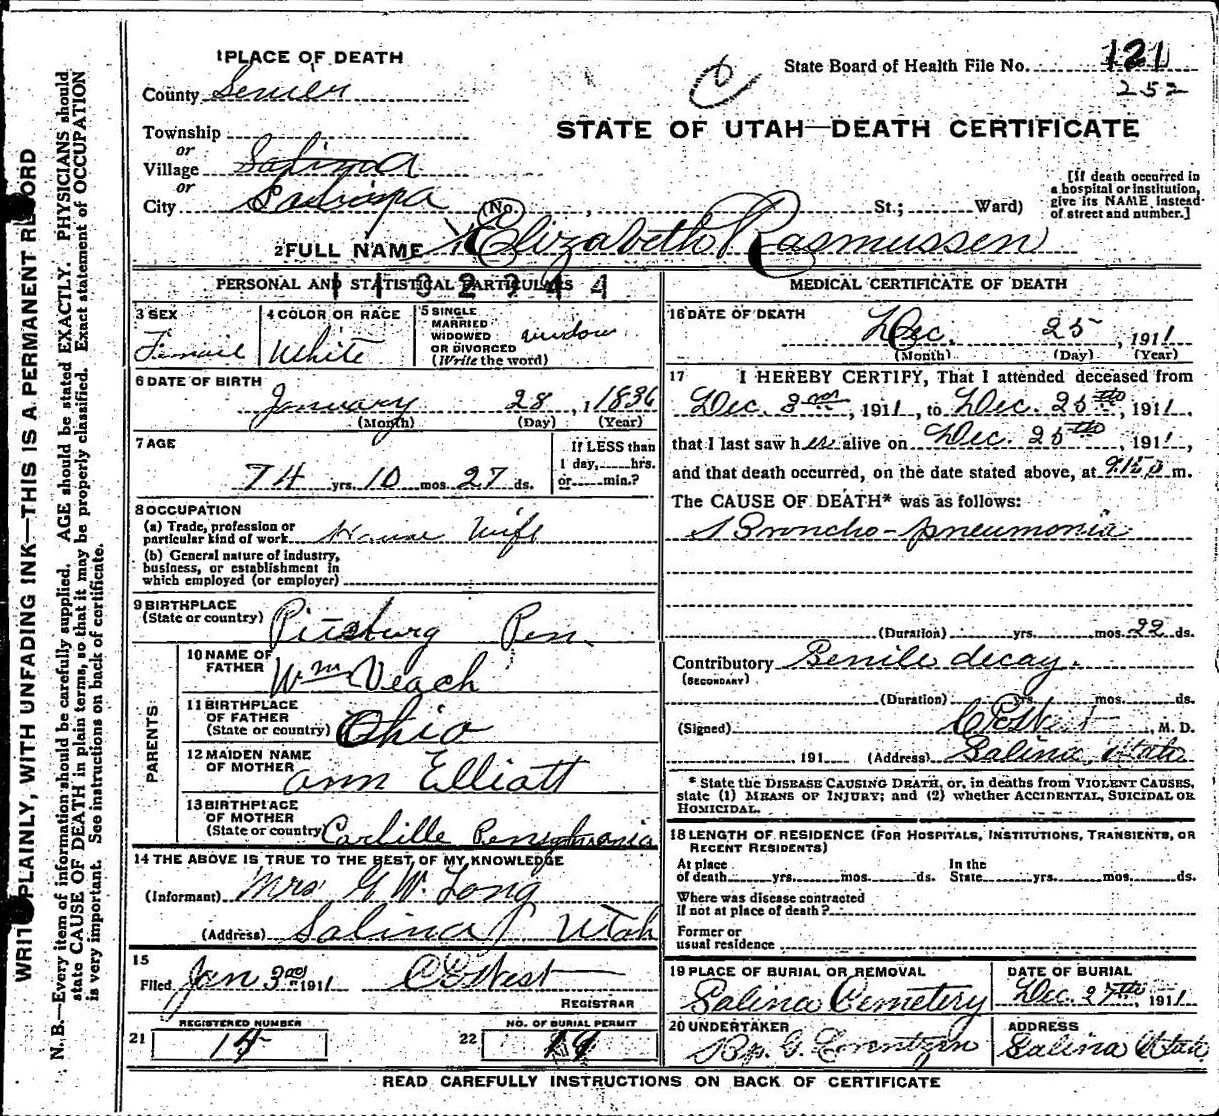 1 PLACE OF DEATH
County Sevier
State Board of Health File No. 121
252
C
STATE OF UTAH—DEATH CERTIFICATE
Township
or
Village Salina
or
City Salina (No. , St.; Ward)
[If death occurred in
a hospital or institution,
give its NAME instead
of street and number.]
2 FULL NAME Elizabeth Rasmussen
PERSONAL AND STATISTICAL PARTICULARS
3 SEX
Female
4 COLOR OR RACE
White
5 SINGLE
MARRIED
WIDOWED
OR DIVORCED
(Write the word)
widow
6 DATE OF BIRTH
January 28, 1836
(Month) (Day) (Year)
7 AGE
74 yrs. 10 mos. 27 ds.
If LESS than
1 day, hrs.
or min.?
8 OCCUPATION
(a) Trade, profession or
particular kind of work House Wife
(b) General nature of industry,
business, or establishment in
which employed (or employer)
9 BIRTHPLACE
(State or country) Pittsburg Pen.
PARENTS
10 NAME OF
FATHER Wm Veach
11 BIRTHPLACE
OF FATHER
(State or country) Ohio
12 MAIDEN NAME
OF MOTHER ann Elliatt
13 BIRTHPLACE
OF MOTHER
(State or country) Carlille Pensylvania
14 THE ABOVE IS TRUE TO THE BEST OF MY KNOWLEDGE
(Informant) Mrs G W. Long
(Address) Salina Utah
15
Filed Jan 3rd 1911
REGISTRAR
REGISTERED NUMBER
21 15
NO. OF BURIAL PERMIT
22 19
MEDICAL CERTIFICATE OF DEATH
16 DATE OF DEATH
Dec. 25, 1911
(Month) (Day) (Year)
17 I HEREBY CERTIFY, That I attended deceased from
Dec. 3rd, 1911, to Dec. 25th, 1911,
that I last saw her alive on Dec. 25th, 1911,
and that death occurred, on the date stated above, at m.
The CAUSE OF DEATH* was as follows:
Broncho-pneumonia
(Duration) yrs. mos. 22 ds.
Contributory Senile decay.
(SECONDARY)
(Duration) yrs. mos. ds.
(Signed) , M. D.
, 191 (Address) Salina, Utah
* State the DISEASE CAUSING DEATH, or, in deaths from VIOLENT CAUSES,
state (1) MEANS OF INJURY; and (2) whether ACCIDENTAL, SUICIDAL OR
HOMICIDAL.
18 LENGTH OF RESIDENCE (FOR HOSPITALS, INSTITUTIONS, TRANSIENTS, OR
RECENT RESIDENTS)
At place
of death yrs. mos. ds.
In the
State yrs. mos. ds.
Where was disease contracted
If not at place of death?
Former or
usual residence
19 PLACE OF BURIAL OR REMOVAL
Salina Cemetery
DATE OF BURIAL
Dec. 27th, 1911
20 UNDERTAKER
ADDRESS
Salina Utah
READ CAREFULLY INSTRUCTIONS ON BACK OF CERTIFICATE
WRITE PLAINLY, WITH UNFADING INK—THIS IS A PERMANENT RECORD
N. B.—Every item of information should be carefully supplied. AGE should be stated EXACTLY. PHYSICIANS should
state CAUSE OF DEATH in plain terms, so that it may be properly classified. Exact statement of OCCUPATION
is very important. See instructions on back of certificate.